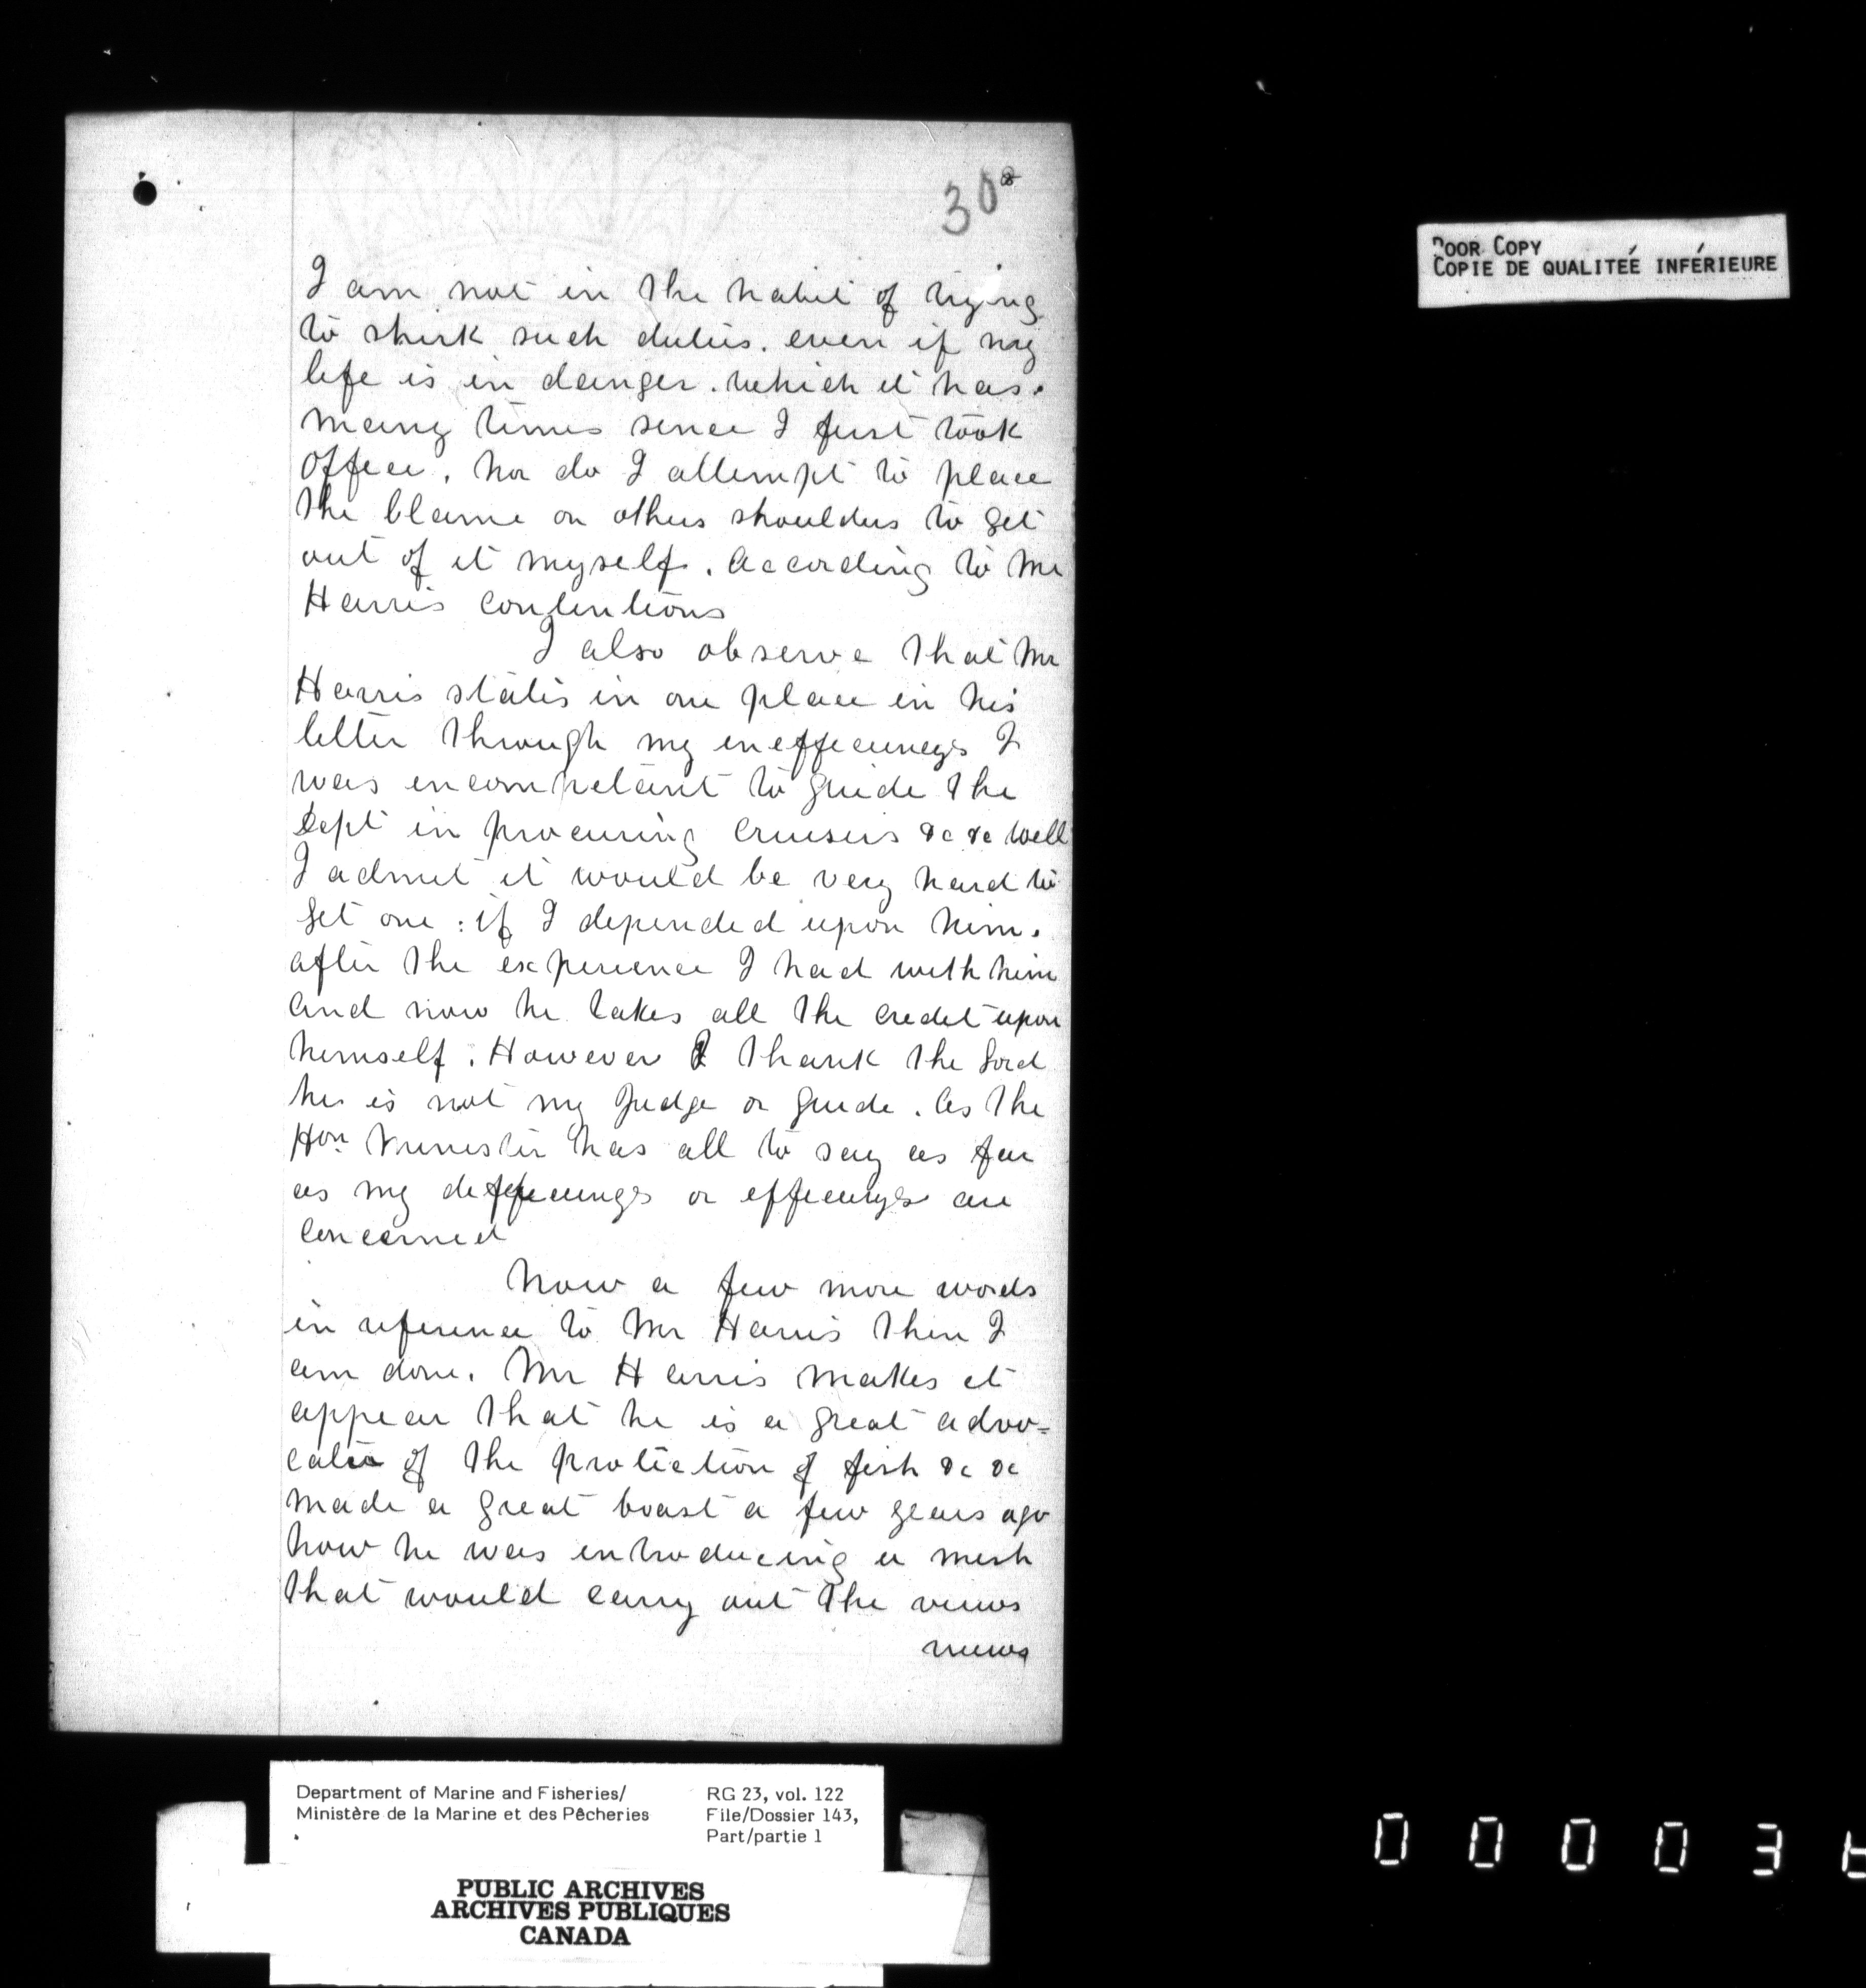 30
8
I am not in the habit of trying
to shirk such duties. even if my
life is in danger. which it has.
many times since I first took
office. nor do I attempt to place
the blame on others shoulders to get
out of it myself. according to Mr
Harris contentions
I also observe that Mr
Harris states in one place in his
letter through my ineffeciencys I
was incompetant to guide the
Dept in procuring Cruisers &c &c well
I admit it would be very hard to
get one : if I depended upon him.
after the experience I had with him
and now he takes all the credit upon
himself. However I thank the Lord
he is not my Judge or guide. as the
Hon. Minister has all to say as far
as my or effeciencys are
concerned
Now a few more words
in reference to Mr Harris then I
am done. Mr Harris makes it
appear that he is a great advo=
cate of the protection of fish &c &c
made a great boast a few years ago
how he was introducing a mesh
that would carry out the views
views
POOR COPY
COPIE DE QUALITEÉ INFÉRIEURE
Department of Marine and Fisheries/ RG 23, vol. 122
Ministère de la Marine et des Pêcheries File/Dossier 143,
Part/partie 1
PUBLIC ARCHIVES
ARCHIVES PUBLIQUES
CANADA
0 0 0 0 3